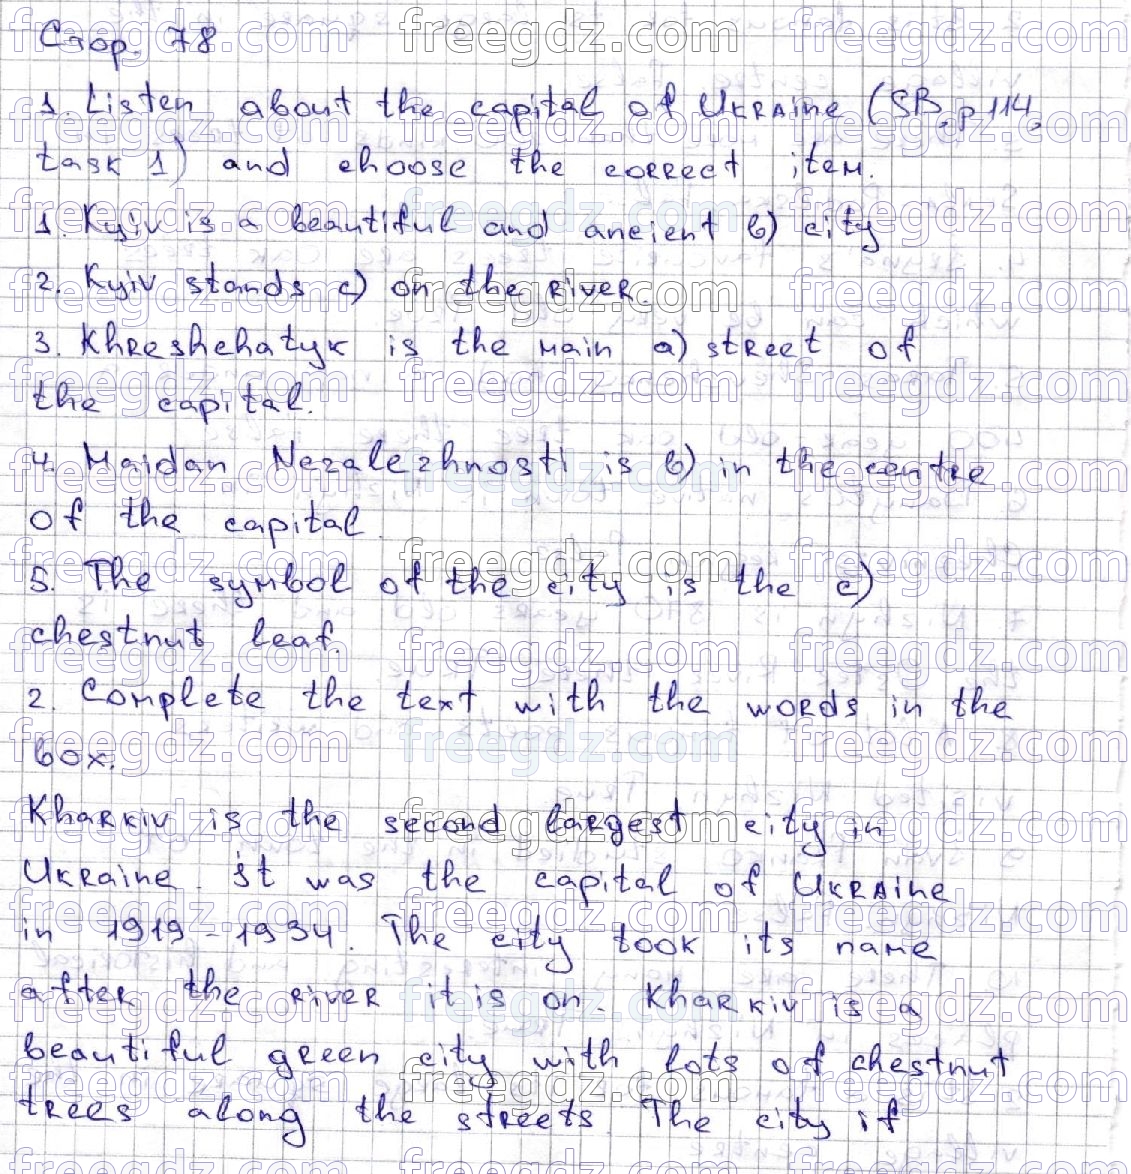 Стор. 78
1. Listen about the capital of Ukraine (SB, p 114,
task 1) and choose the correct item.
1. Kyiv is a beautiful and ancient b) city
2. Kyiv stands c) on the river.
3. Khreshchatyk is the main a) street of
the capital.
4. Maidan Nezalezhnosti is b) in the centre
of the capital.
5. The symbol of the city is the c)
chestnut leaf.
2. Complete the text with the words in the
box.
Kharkiv is the second largest city in
Ukraine. it was the capital of Ukraine
in 1919-1934. The city took its name
after the river it is on. Kharkiv is a
beautiful green city with lots of chestnut
trees along the streets. The city if
freegdz.com